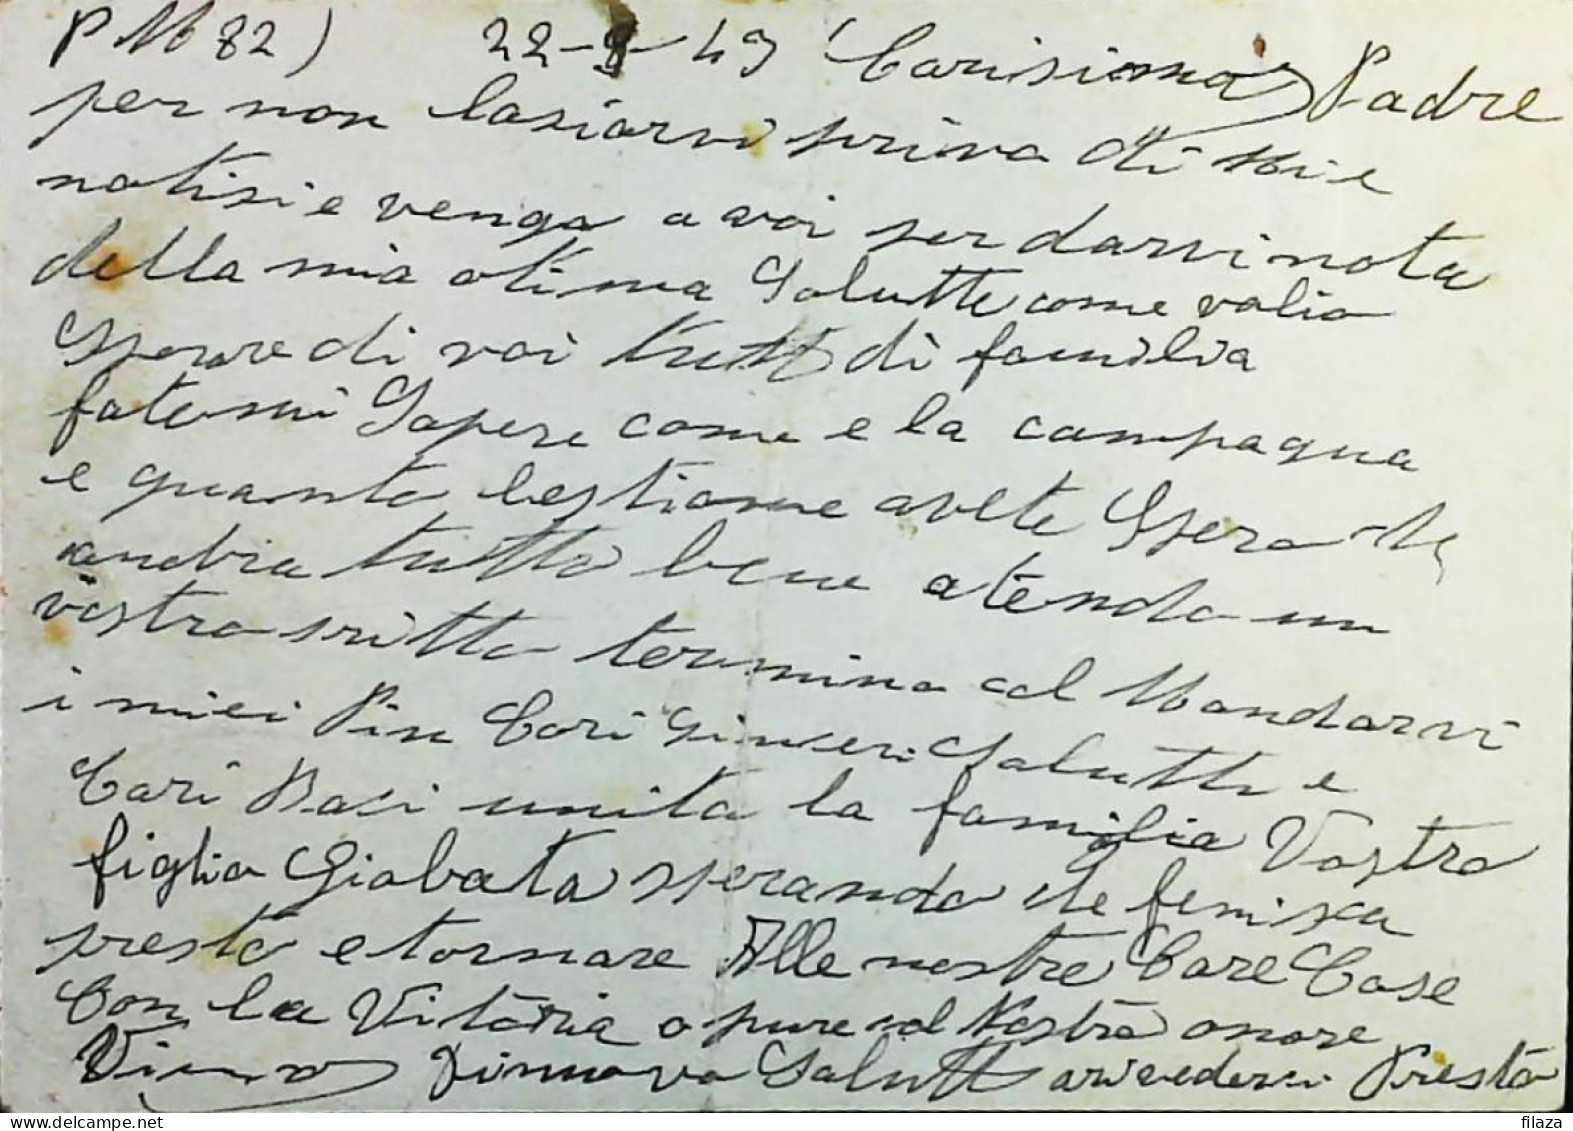 P M 82) 22-8-43 Carisimo Padre
per non lasiarvi privo di Mie
notisie vengo a voi per darvi nota
della mia otima Salutte come volio
Sperare di voi tutti di familia
fatemi Sapere come e la campagna
e quanto bestiame avete Spero che
andra tutto bene atendo un
vostro sritto termino col Mandarvi
i miei Piu Cari Sinceri Salutti e
Cari Basi unito la familia Vostro
figlio Giobata sperando che fenisca
presto e tornare Alle nostre Care Case
Con la Vitoria opure col Nostro onore
Rinnovo Salutti arivederci Presto
delcampe.net
filaza